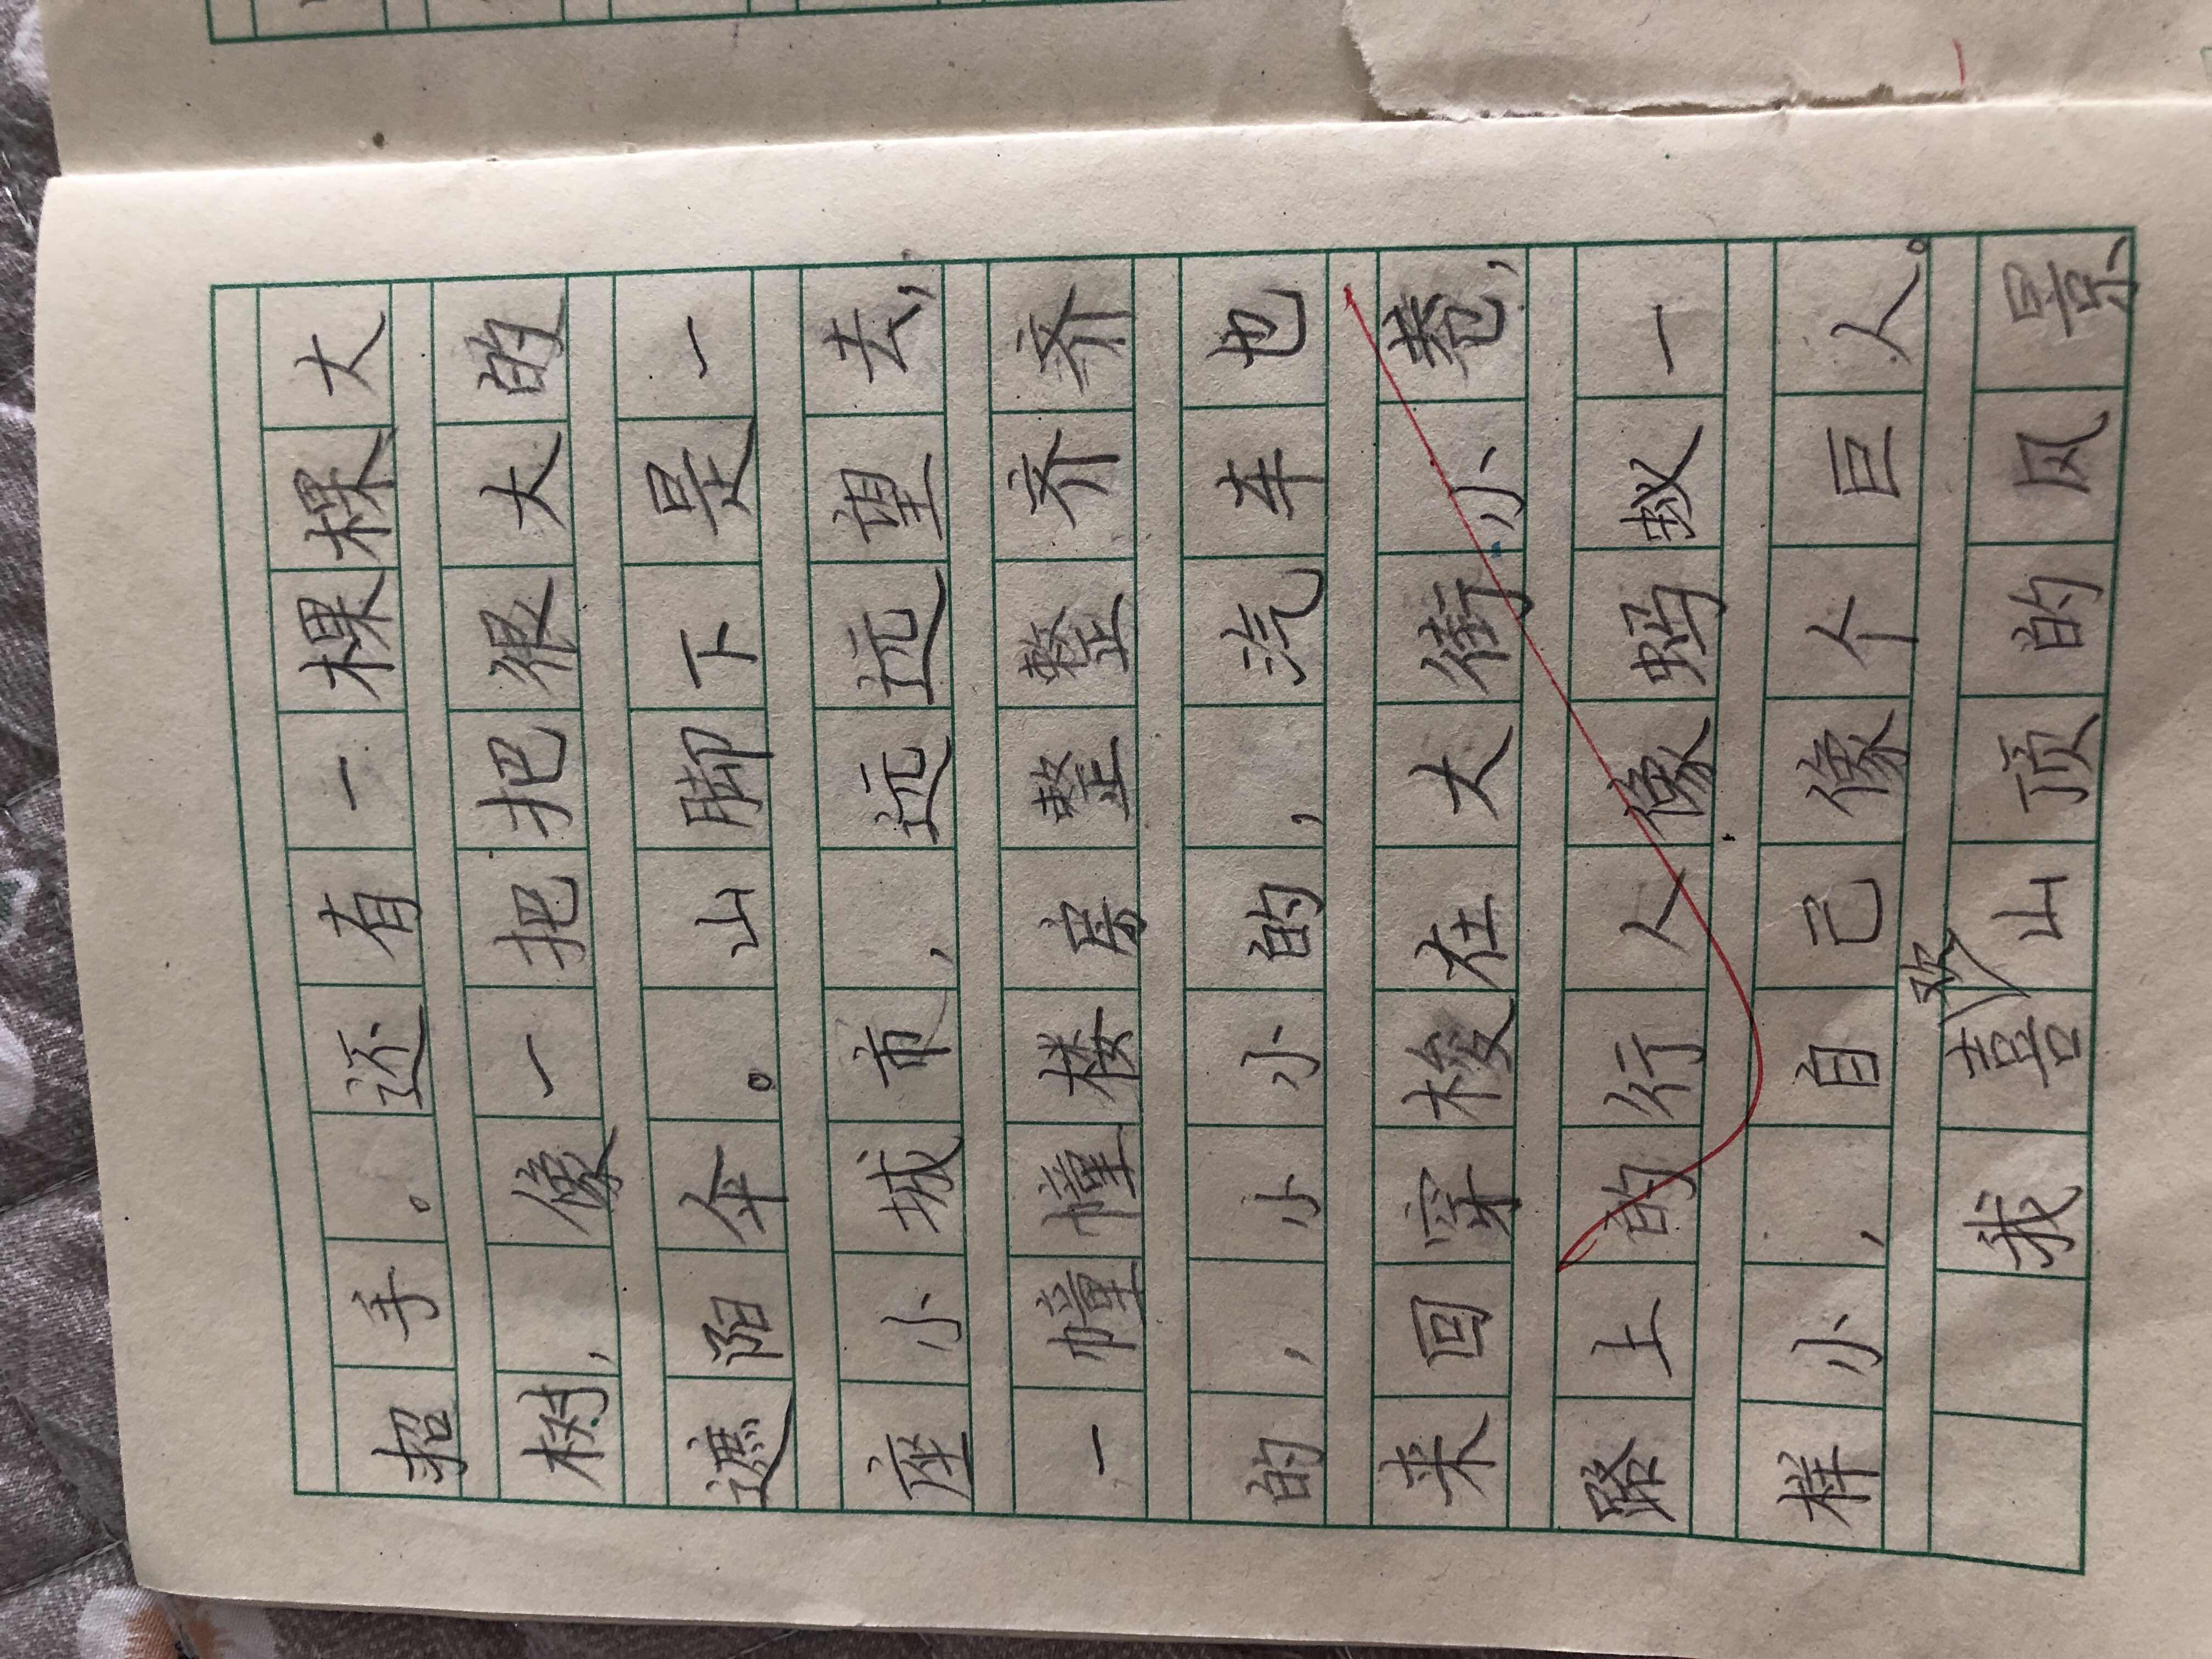 招手。还有一棵棵大
树,像一把把很大的
遮阳伞。山脚下是一
座小城市,远远望去,
一幢幢楼房整整齐齐
的,小小的,汽车也
来回穿梭在大街小巷,
路上的行人像蚂蚁一
样小,自己像个巨人。
我喜欢山顶的风景、